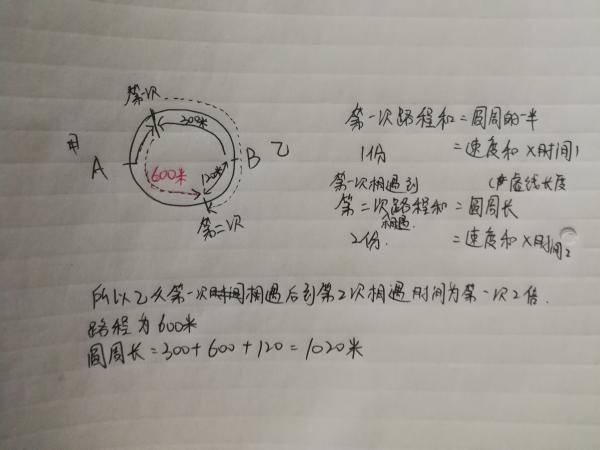 第一次
300米
甲
A
B 乙
600米
120米
第二次
第一次路程和=圆周的一半
1份 =速度和×时间1
第一次相遇到 (虚线长度
第二次路程和=圆周长
相遇
2份. =速度和×时间2
所以乙从第一次相遇后到第2次相遇时间为第一次2倍.
路程为600米
圆周长=300+600+120=1020米